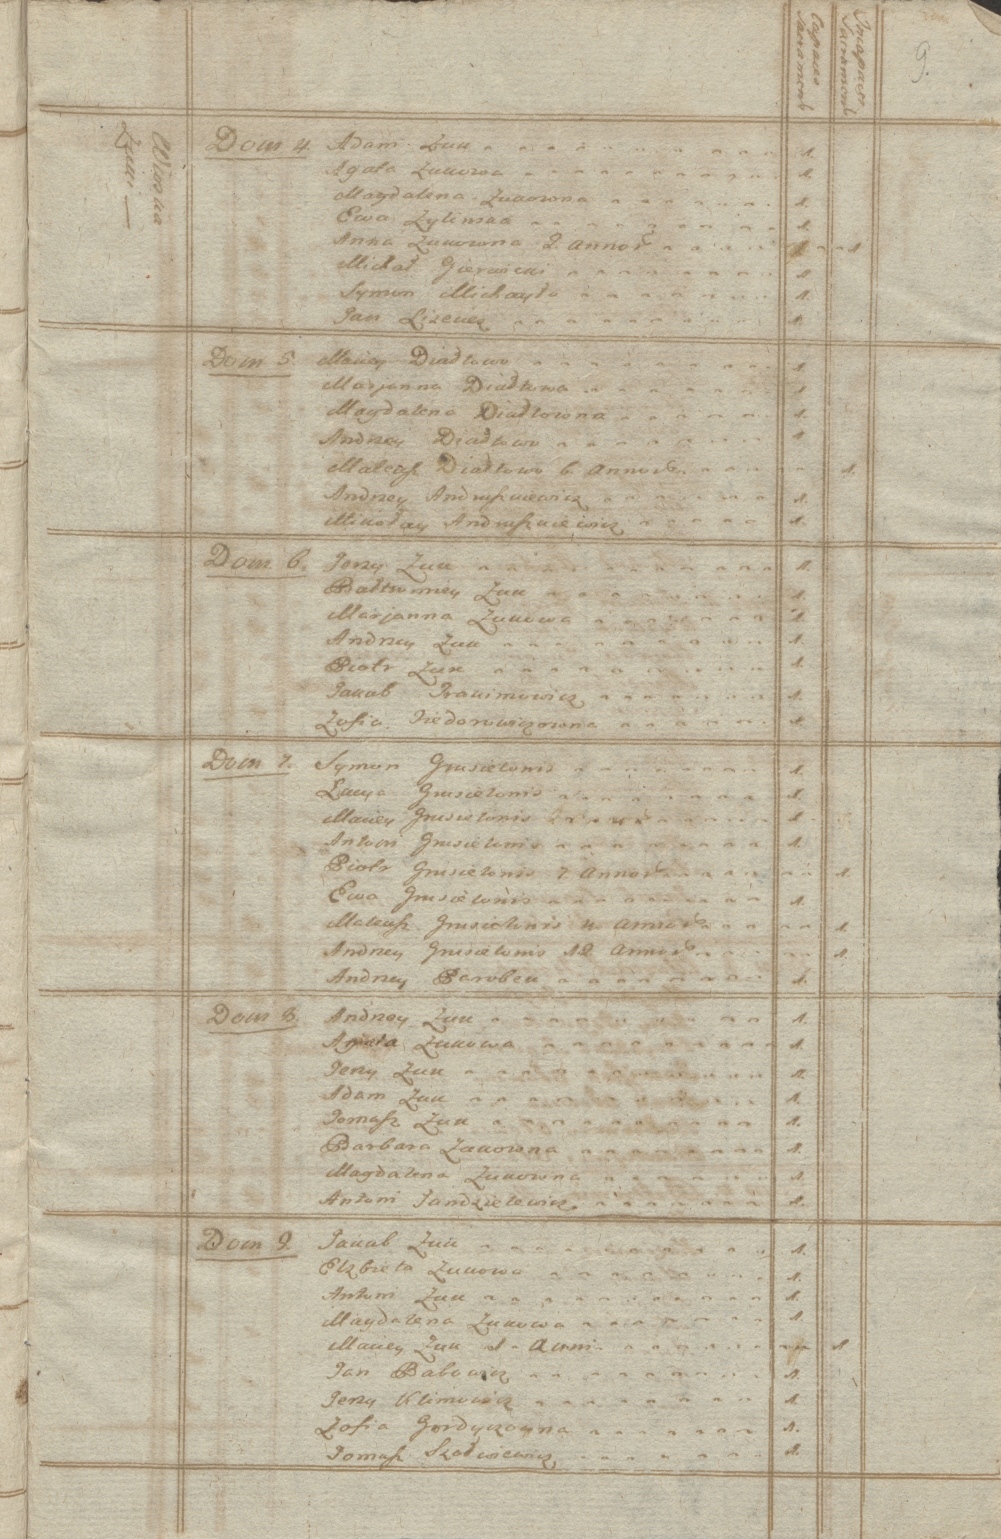 Capaces Sacrament
Incapaces Sacrament
9.
Wioska Żuki
Dom 4. Adam Żuk 1.
Agata Żukowa 1.
Magdalena Żukowna 1.
Ewa Zylinska 1.
Anna Żukowna 9. annor 1
Michał 1.
Symon Michayło 1.
Jan 1.
Dom 5 Maciey Dziadłowo 1.
Marjanna Dziadłowa 1.
Magdalena Dziadłowna 1.
Andrzey Dziadłowo 1.
Mateusz Dziadłowo 6. annor. 1.
Andrzey Andruszkiewicz 1.
Mikołay Andruszkiewicz 1.
Dom 6. Jerzy Żuk 1.
Bałtromiey Żuk 1.
Marjanna Żukowa 1.
Andrzey Żuk 1.
Piotr Żuk 1.
Jakub 1.
Zofia Fiedorowiczowna 1.
Dom 7. Symon Grusielonis 1.
Łucya Grusielonis 1.
Maciey Grusielonis 1.
Antoni Grusielonis 1.
Piotr Grusielonis 7 Annor 1.
Ewa Grusielonis 1.
Mateusz Grusielonis 4 annor 1.
Andrzey Grusielonis 12 Annor 1.
Andrzey Parobek 1.
Dom 8. Andrzey Żuk 1.
Agata Żukowa 1.
Jerzy Żuk 1.
Adam Żuk 1.
Tomasz Żuk 1.
Barbara Żukowna 1.
Magdalena Żukowna 1.
Antoni 1.
Dom 9. Jakub Żuk 1.
Elzbieta Żukowa 1.
Antoni Żuk 1.
Magdalena Żukowa 1.
Maciey Żuk 1. Anni 1
Jan 1.
Jerzy Klimowicz 1.
Zofia 1.
Tomasz 1.